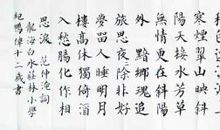 寒煙翠山映斜
陽天接水芳草
無情更在斜陽
外 黯鄉魂追
旅思夜除非好
夢留人睡明月
樓高休獨倚酒
入愁腸化作相
思淚 范仲淹詞
龍海白水莊林小學
偉十二歲書